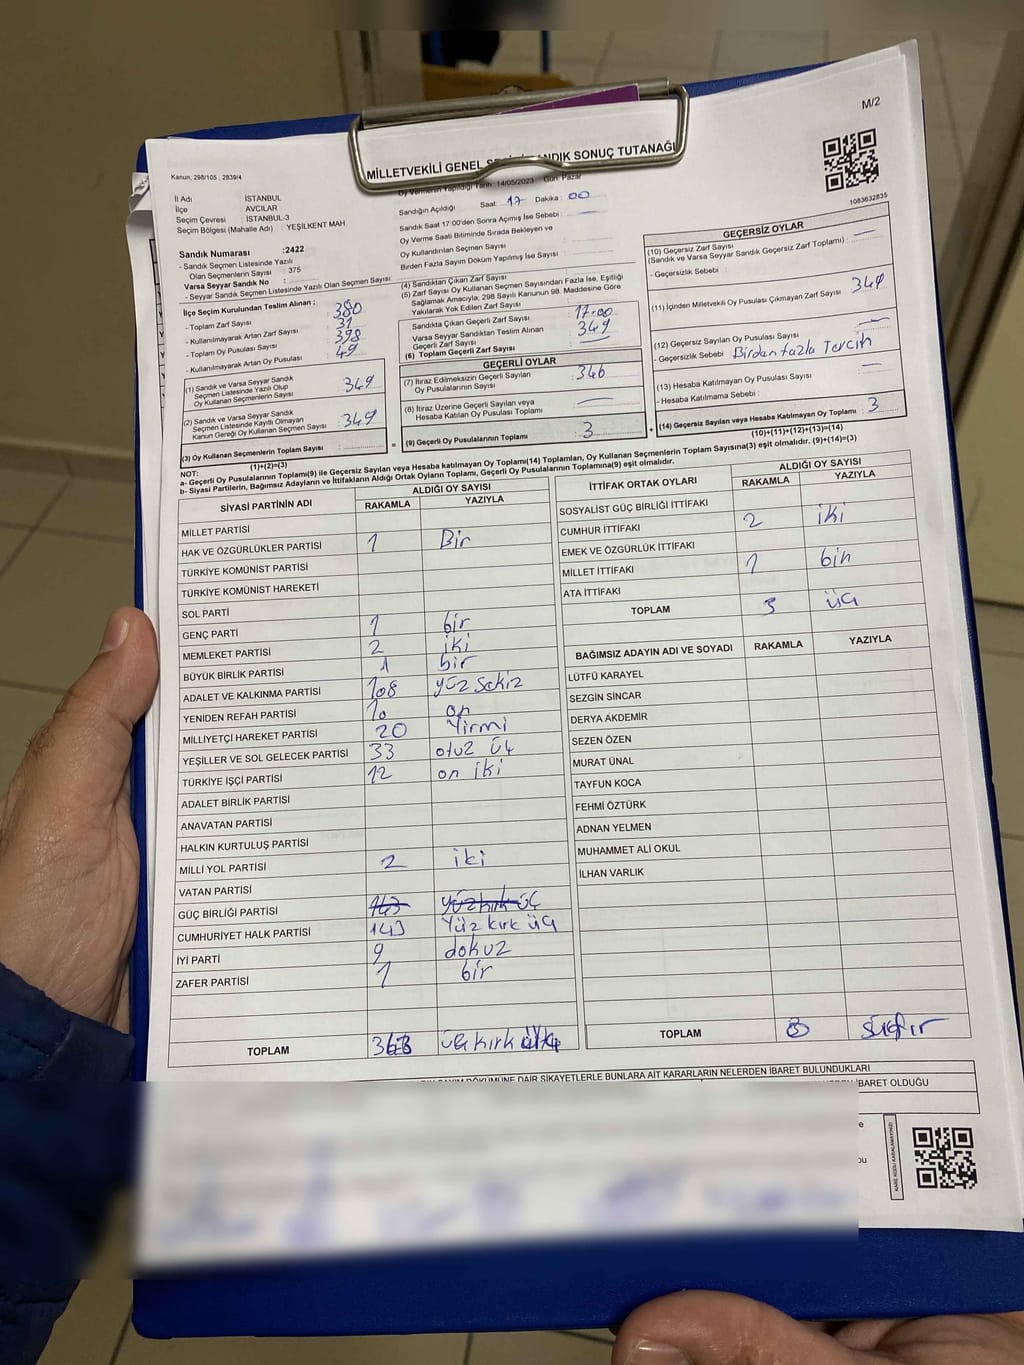 M/2
MİLLETVEKİLİ GENEL SANDIK SONUÇ TUTANAĞI
Kanun; 298/105 , 2839/4
Oy Vermenin Yapıldığı Tarih :14/05/2023 Gün: Pazar
1083632835
İl Adı : İSTANBUL
İlçe : AVCILAR
Seçim Çevresi : İSTANBUL-3
Seçim Bölgesi (Mahalle Adı) : YEŞİLKENT MAH
Sandık Numarası :2422
- Sandık Seçmen Listesinde Yazılı
Olan Seçmenlerin Sayısı : 375
Varsa Seyyar Sandık No :
- Seyyar Sandık Seçmen Listesinde Yazılı Olan Seçmen Sayısı:
İlçe Seçim Kurulundan Teslim Alınan ;
- Toplam Zarf Sayısı : 380
- Kullanılmayarak Artan Zarf Sayısı : 31
- Toplam Oy Pusulası Sayısı : 398
- Kullanılmayarak Artan Oy Pusulası : 49
(1) Sandık ve Varsa Seyyar Sandık
Seçmen Listesinde Yazılı Olup
Oy Kullanan Seçmenlerin Sayısı : 349
(2) Sandık ve Varsa Seyyar Sandık
Seçmen Listesinde Kayıtlı Olmayan
Kanun Gereği Oy Kullanan Seçmen Sayısı : 349
(3) Oy Kullanan Seçmenlerin Toplam Sayısı :
(1)+(2)=(3)
Sandığın Açıldığı Saat: 17 Dakika : 00
Sandık Saat 17:00'den Sonra Açımış İse Sebebi :
Oy Verme Saati Bitiminde Sırada Bekleyen ve
Oy Kullandırılan Seçmen Sayısı :
Birden Fazla Sayım Döküm Yapılmış İse Sayısı :
(4) Sandıktan Çıkan Zarf Sayısı
(5) Zarf Sayısı Oy Kullanan Seçmen Sayısından Fazla İse, Eşitliği
Sağlamak Amacıyla, 298 Sayılı Kanunun 98. Maddesine Göre
Yakılarak Yok Edilen Zarf Sayısı :
Sandıkta Çıkan Geçerli Zarf Sayısı : 17.00
Varsa Seyyar Sandıktan Teslim Alınan
Geçerli Zarf Sayısı : 349
(6) Toplam Geçerli Zarf Sayısı :
GEÇERLİ OYLAR
(7) İtiraz Edilmeksizin Geçerli Sayılan
Oy Pusulalarının Sayısı : 346
(8) İtiraz Üzerine Geçerli Sayılan veya
Hesaba Katılan Oy Pusulası Toplamı :
= (9) Geçerli Oy Pusulalarının Toplamı : 3
GEÇERSİZ OYLAR
(10) Geçersiz Zarf Sayısı
(Sandık ve Varsa Sandık Geçersiz Zarf Toplamı) :
- Geçersizlik Sebebi :
(11) İçinden Milletvekili Oy Pusulası Çıkmayan Zarf Sayısı : 349
(12) Geçersiz Sayılan Oy Pusulası Sayısı :
- Geçersizlik Sebebi : Birdan fazla Tercih
(13) Hesaba Katılmayan Oy Pusulası Sayısı :
- Hesaba Katılmama Sebebi :
+ (14) Geçersiz Sayılan veya Hesaba Katılmayan Oy Toplamı : 3
(10)+(11)+(12)+(13)=(14)
NOT:
a- Geçerli Oy Pusulasının Toplamı(9) ile Geçersiz Sayılan veya Hesaba katılmayan Oy Toplamı(14) Toplamları, Oy Kullanan Seçmenlerin Toplam Sayısına(3) eşit olmalıdır. (9)+(14)=(3)
b- Siyasi Partilerin, Bağımsız Adayların ve İttifakların Aldığı Ortak Oyların Toplamı, Geçerli Oy Pusulalarının Toplamına(9) eşit olmalıdır.
SİYASİ PARTİNİN ADI ALDIĞI OY SAYISI
RAKAMLA YAZIYLA
MİLLET PARTİSİ
HAK VE ÖZGÜRLÜKLER PARTİSİ 1 Bir
TÜRKİYE KOMÜNİST PARTİSİ
TÜRKİYE KOMÜNİST HAREKETİ
SOL PARTİ
GENÇ PARTİ 1 bir
MEMLEKET PARTİSİ 2 iki
BÜYÜK BİRLİK PARTİSİ 1 bir
ADALET VE KALKINMA PARTİSİ 108 yüz sekiz
YENİDEN REFAH PARTİSİ 10 on
MİLLİYETÇİ HAREKET PARTİSİ 20 Yirmi
YEŞİLLER VE SOL GELECEK PARTİSİ 33 otuz üç
TÜRKİYE İŞÇİ PARTİSİ 12 on iki
ADALET BİRLİK PARTİSİ
ANAVATAN PARTİSİ
HALKIN KURTULUŞ PARTİSİ
MİLLİ YOL PARTİSİ 2 iki
VATAN PARTİSİ
GÜÇ BİRLİĞİ PARTİSİ 143 yüz kırk üç
CUMHURİYET HALK PARTİSİ 143 Yüz kırk üç
İYİ PARTİ 9 dokuz
ZAFER PARTİSİ 1 bir
TOPLAM üç kırk
İTTİFAK ORTAK OYLARI ALDIĞI OY SAYISI
RAKAMLA YAZIYLA
SOSYALİST GÜÇ BİRLİĞİ İTTİFAKI
CUMHUR İTTİFAKI 2 iki
EMEK VE ÖZGÜRLÜK İTTİFAKI
MİLLET İTTİFAKI 1 bir
ATA İTTİFAKI
TOPLAM 3 üç
BAĞIMSIZ ADAYIN ADI VE SOYADI RAKAMLA YAZIYLA
LÜTFÜ KARAYEL
SEZGİN SİNCAR
DERYA AKDEMİR
SEZEN ÖZEN
MURAT ÜNAL
TAYFUN KOCA
FEHMİ ÖZTÜRK
ADNAN YELMEN
MUHAMMET ALİ OKUL
İLHAN VARLIK
TOPLAM sıfır
DÖKÜMÜNE DAİR ŞİKAYETLERLE BUNLARA AİT KARARLARIN NELERDEN İBARET BULUNDUKLARI
İBARET OLDUĞU
KARE KODU KARALAMAYINIZ!